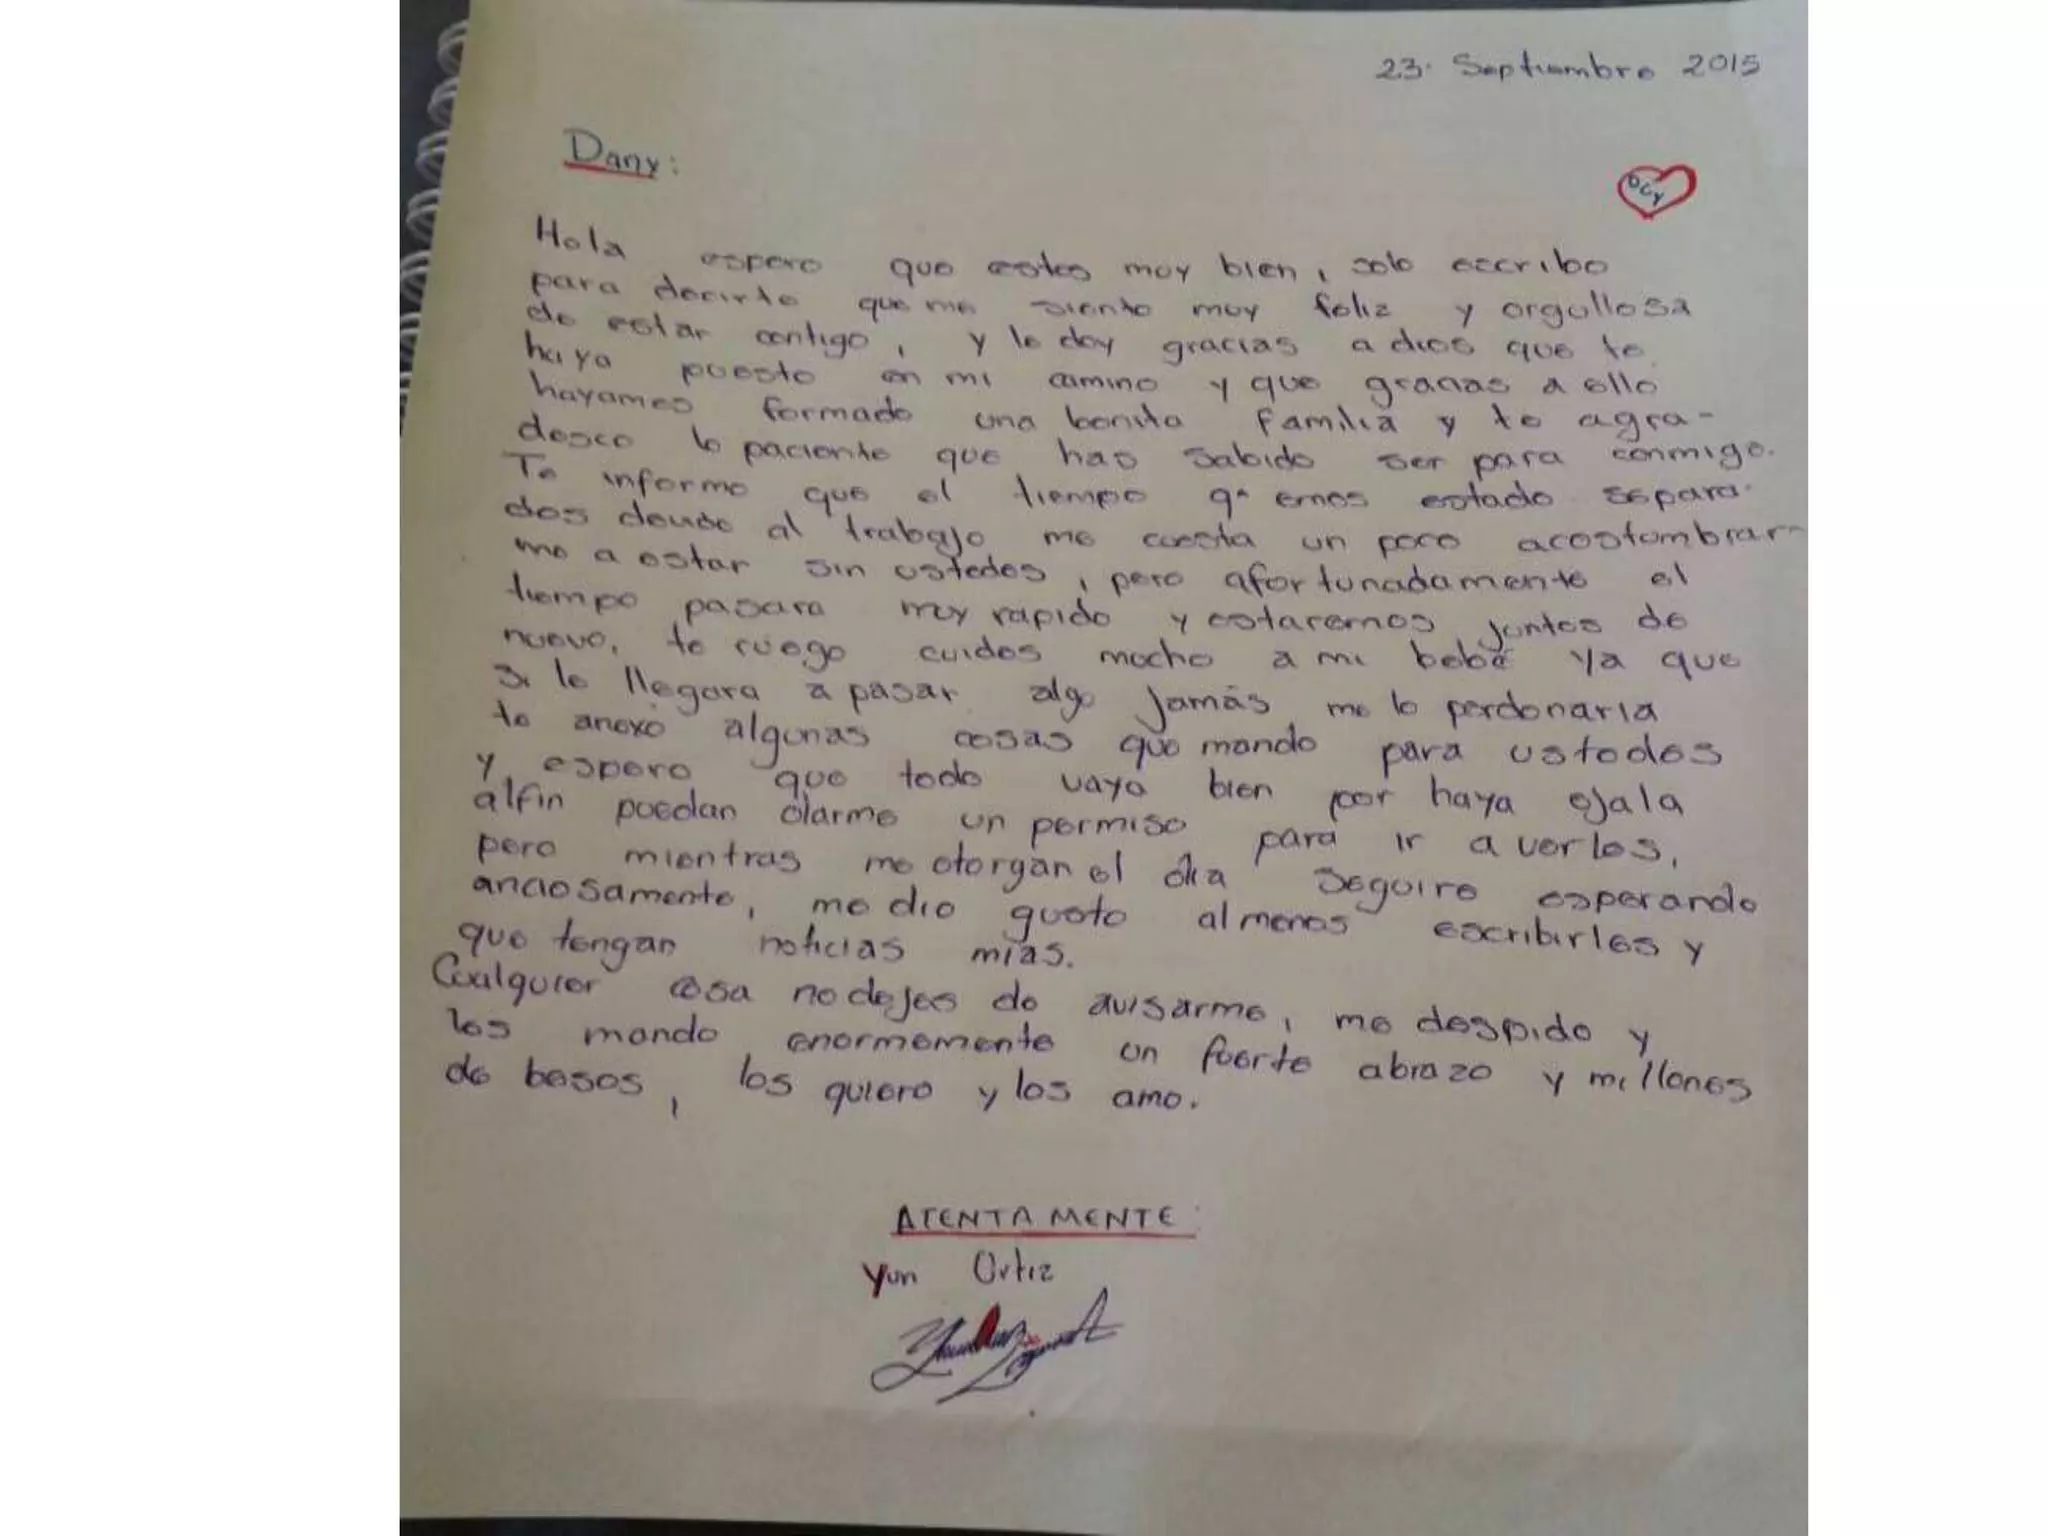 23. Septiembre 2015
Dany:
DCY
Hola espero que estes muy bien, solo escribo
para decirte que me siento muy feliz y orgullosa
de estar contigo, y le doy gracias a dios que te
haya puesto en mi camino y que gracias a ello
hayamos formado una bonita familia y te agra-
desco lo paciente que has sabido ser para conmigo.
Te informo que el tiempo qe emos estado separa-
dos devido al trabajo me cuesta un poco acostumbrar-
me a estar sin ustedes, pero afortunadamente el
tiempo pasara muy rapido y estaremos juntos de
nuevo, te ruego cuides mucho a mi bebé ya que
si le llegara a pasar algo jamás me lo perdonaria
te anexo algunas cosas que mando para ustedes
y espero que todo vaya bien por haya ojala
alfin puedan darme un permiso para ir a verlos,
pero mientras me otorgan el día seguire esperando
anciosamente, me dio gusto al menos escribirles y
que tengan noticias mías.
Cualquier cosa no dejes de avisarme, me despido y
les mando enormemente un fuerte abrazo y millones
de besos, los quiero y los amo.
ATENTAMENTE:
Yuri Ortiz